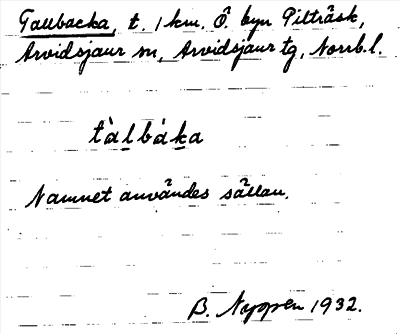 Tallbacka, t. 1 km. Ö. byn Pilträsk,
Arvidsjaur sn, Arvidsjaur tg, Norrb. l.
tàlbáka
Namnet användes sällan.
B. Noppen 1932.